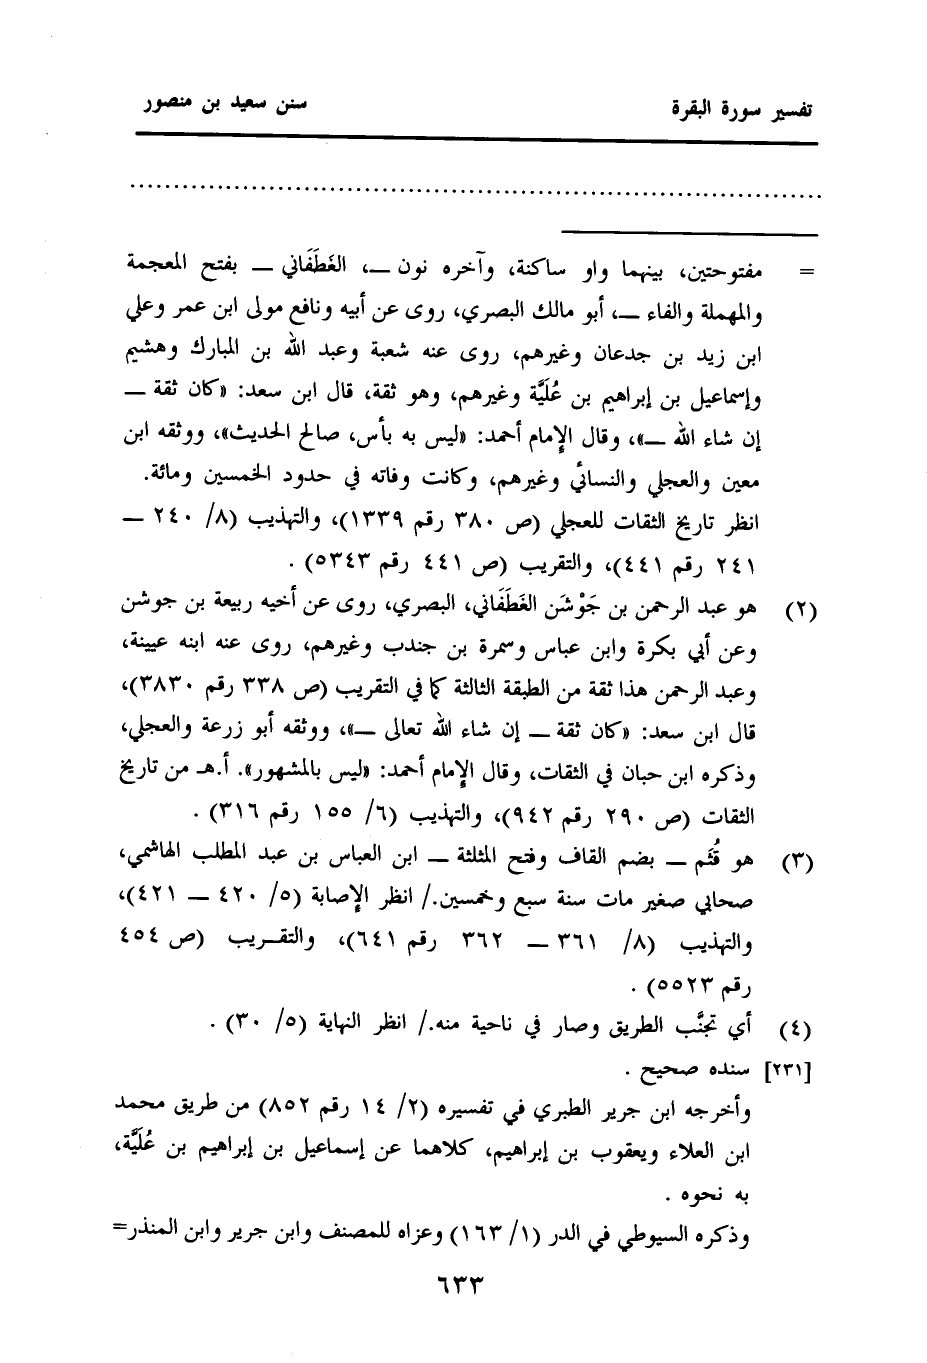 تفسير سورة البقرة سنن سعيد بن منصور
................................................................................
= مفتوحتين، بينهما واو ساكنة، وآخره نون ــ، الغَطَفَاني ــ بفتح المعجمة
والمهملة والفاء ــ، أبو مالك البصري، روى عن أبيه ونافع مولى ابن عمر وعلي
ابن زيد بن جدعان وغيرهم، روى عنه شعبة وعبد الله بن المبارك وهشيم
وإسماعيل بن إبراهيم بن عُلَيَّة وغيرهم، وهو ثقة، قال ابن سعد: «كان ثقة ــ
إن شاء الله ــ»، وقال الإمام أحمد: «ليس به بأس، صالح الحديث»، ووثقه ابن
معين والعجلي والنسائي وغيرهم، وكانت وفاته في حدود الخمسين ومائة.
انظر تاريخ الثقات للعجلي (ص ٣٨٠ رقم ١٣٣٩)، والتهذيب (٨/ ٢٤٠ ــ
٢٤١ رقم ٤٤١)، والتقريب (ص ٤٤١ رقم ٥٣٤٣) .
(٢) هو عبد الرحمن بن جَوْشَن الغَطَفَاني، البصري، روى عن أخيه ربيعة بن جوشن
وعن أبي بكرة وابن عباس وسمرة بن جندب وغيرهم، روى عنه ابنه عيينة،
وعبد الرحمن هذا ثقة من الطبقة الثالثة كما في التقريب (ص ٣٣٨ رقم ٣٨٣٠)،
قال ابن سعد: «كان ثقة ــ إن شاء الله تعالى ــ»، ووثقه أبو زرعة والعجلي،
وذكره ابن حبان في الثقات، وقال الإمام أحمد: «ليس بالمشهور». أ.هـ من تاريخ
الثقات (ص ٢٩٠ رقم ٩٤٢)، والتهذيب (٦/ ١٥٥ رقم ٣١٦) .
(٣) هو قُثَم ــ بضم القاف وفتح المثلثة ــ ابن العباس بن عبد المطلب الهاشمي،
صحابي صغير مات سنة سبع وخمسين./ انظر الإصابة (٥/ ٤٢٠ ــ ٤٢١)،
والتهذيب (٨/ ٣٦١ ــ ٣٦٢ رقم ٦٤١)، والتقريب (ص ٤٥٤
رقم ٥٥٢٣) .
(٤) أي تجنَّب الطريق وصار في ناحية منه./ انظر النهاية (٥/ ٣٠) .
[٢٣١] سنده صحيح .
وأخرجه ابن جرير الطبري في تفسيره (٢/ ١٤ رقم ٨٥٢) من طريق محمد
ابن العلاء ويعقوب بن إبراهيم، كلاهما عن إسماعيل بن إبراهيم بن عُلَيَّة،
به نحوه .
وذكره السيوطي في الدر (١/ ١٦٣) وعزاه للمصنف وابن جرير وابن المنذر=
٦٣٣